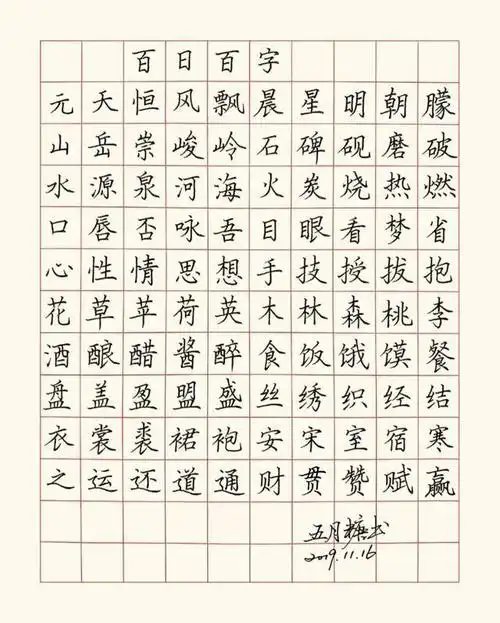 百日百字
元天恒风飘晨星明朝朦
山岳崇峻岭石碑砚磨破
水源泉河海火炭烧热燃
口唇否咏吾目眼看梦省
心性情思想手技授拔抱
花草苹荷英木林森桃李
酒酿醋酱醉食饭饿馍餐
盘盖盈盟盛丝绣织经结
衣裳裘裙袍安宋室宿寒
之运还道通财贯赞赋赢
五月糖书
2019.11.16